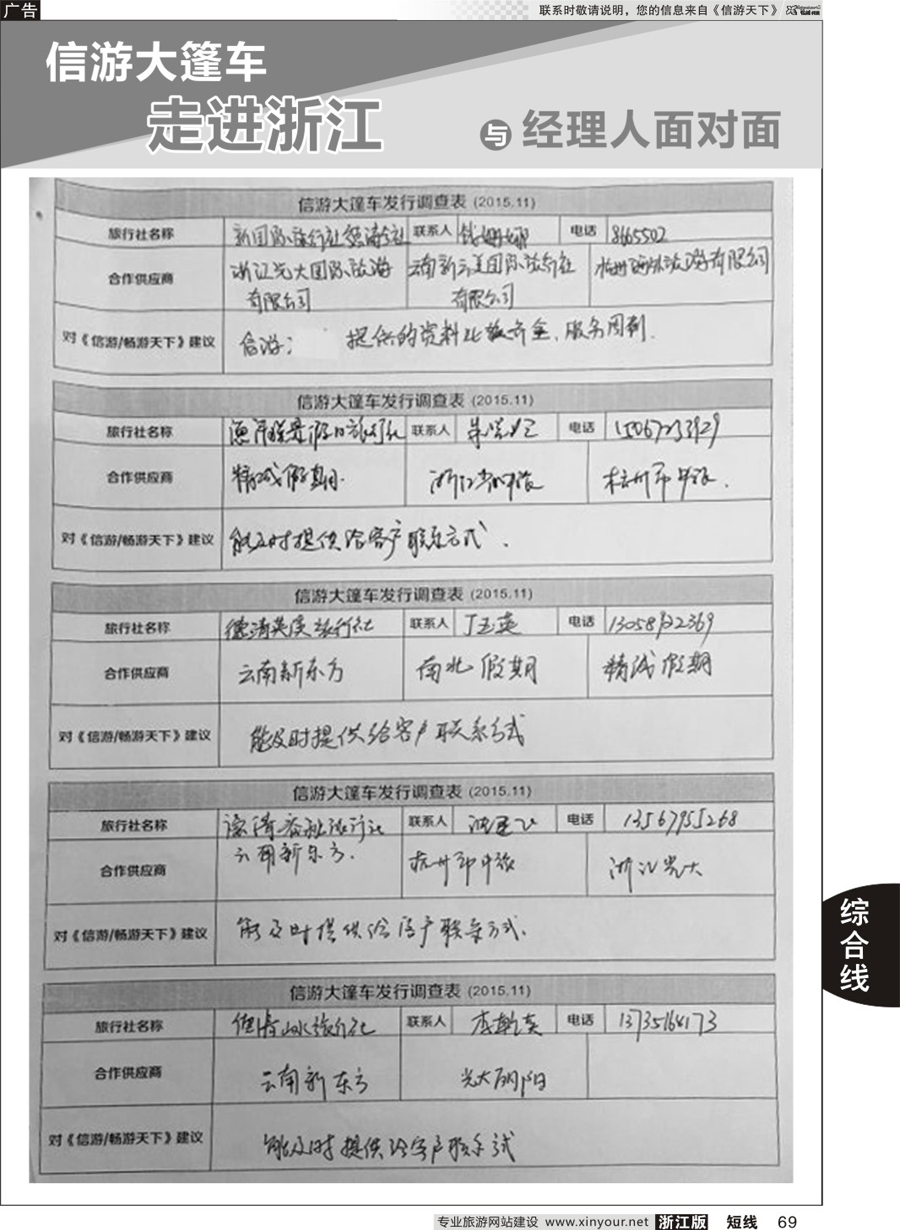 广告
联系时敬请说明，您的信息来自《信游天下》
信游大篷车
走进浙江
与 经理人面对面
信游大篷车发行调查表 (2015.11)
旅行社名称 联系人 电话 8665502
合作供应商 浙江光大国际旅游 云南新元美国际旅行社
有限公司 有限公司
对《信游/畅游天下》建议 信游： 提供的资料比较齐全，服务周到.
信游大篷车发行调查表 (2015.11)
旅行社名称 联系人 电话 15067233929
合作供应商 精诚假期. 浙江 中旅 杭州市中旅.
对《信游/畅游天下》建议 能及时提供给客户联系方式.
信游大篷车发行调查表 (2015.11)
旅行社名称 德清英溪旅行社 联系人 丁玉英 电话 13058922369
合作供应商 云南新东方 南北假期 精诚假期
对《信游/畅游天下》建议 能及时提供给客户联系方式
信游大篷车发行调查表 (2015.11)
旅行社名称 联系人 电话 13567955268
合作供应商 云南新东方. 杭州市中旅 浙江光大
对《信游/畅游天下》建议 能及时提供给客户联系方式.
信游大篷车发行调查表 (2015.11)
旅行社名称 德清山水旅行社 联系人 电话 13735164173
合作供应商 云南新东方 光大阴阳
对《信游/畅游天下》建议 能及时提供给客户联系方式
综合线
专业旅游网站建设 www.xinyour.net 浙江版 短线 69